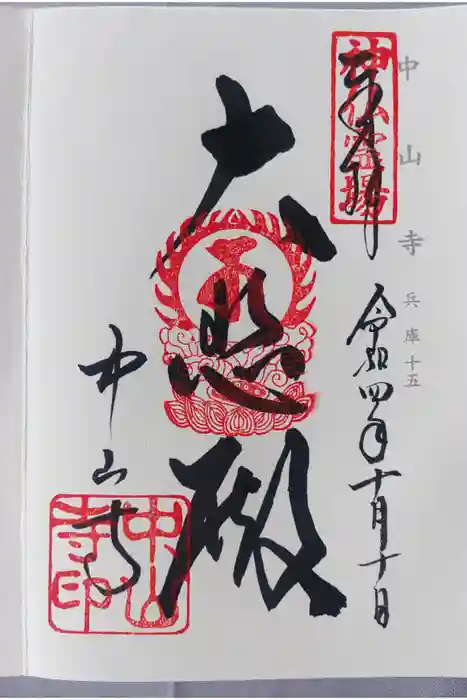 中山寺 兵庫十五
神仏霊場
奉拝
令和四年十月十日
大悲殿
中山寺
中山寺印